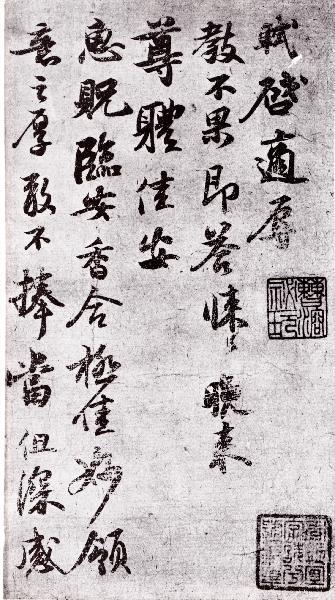 軾啓適辱
教不果即答悚悚晚來
尊體佳安
惠貺臨安香合極佳妙領
意之厚敢不捧當但深感